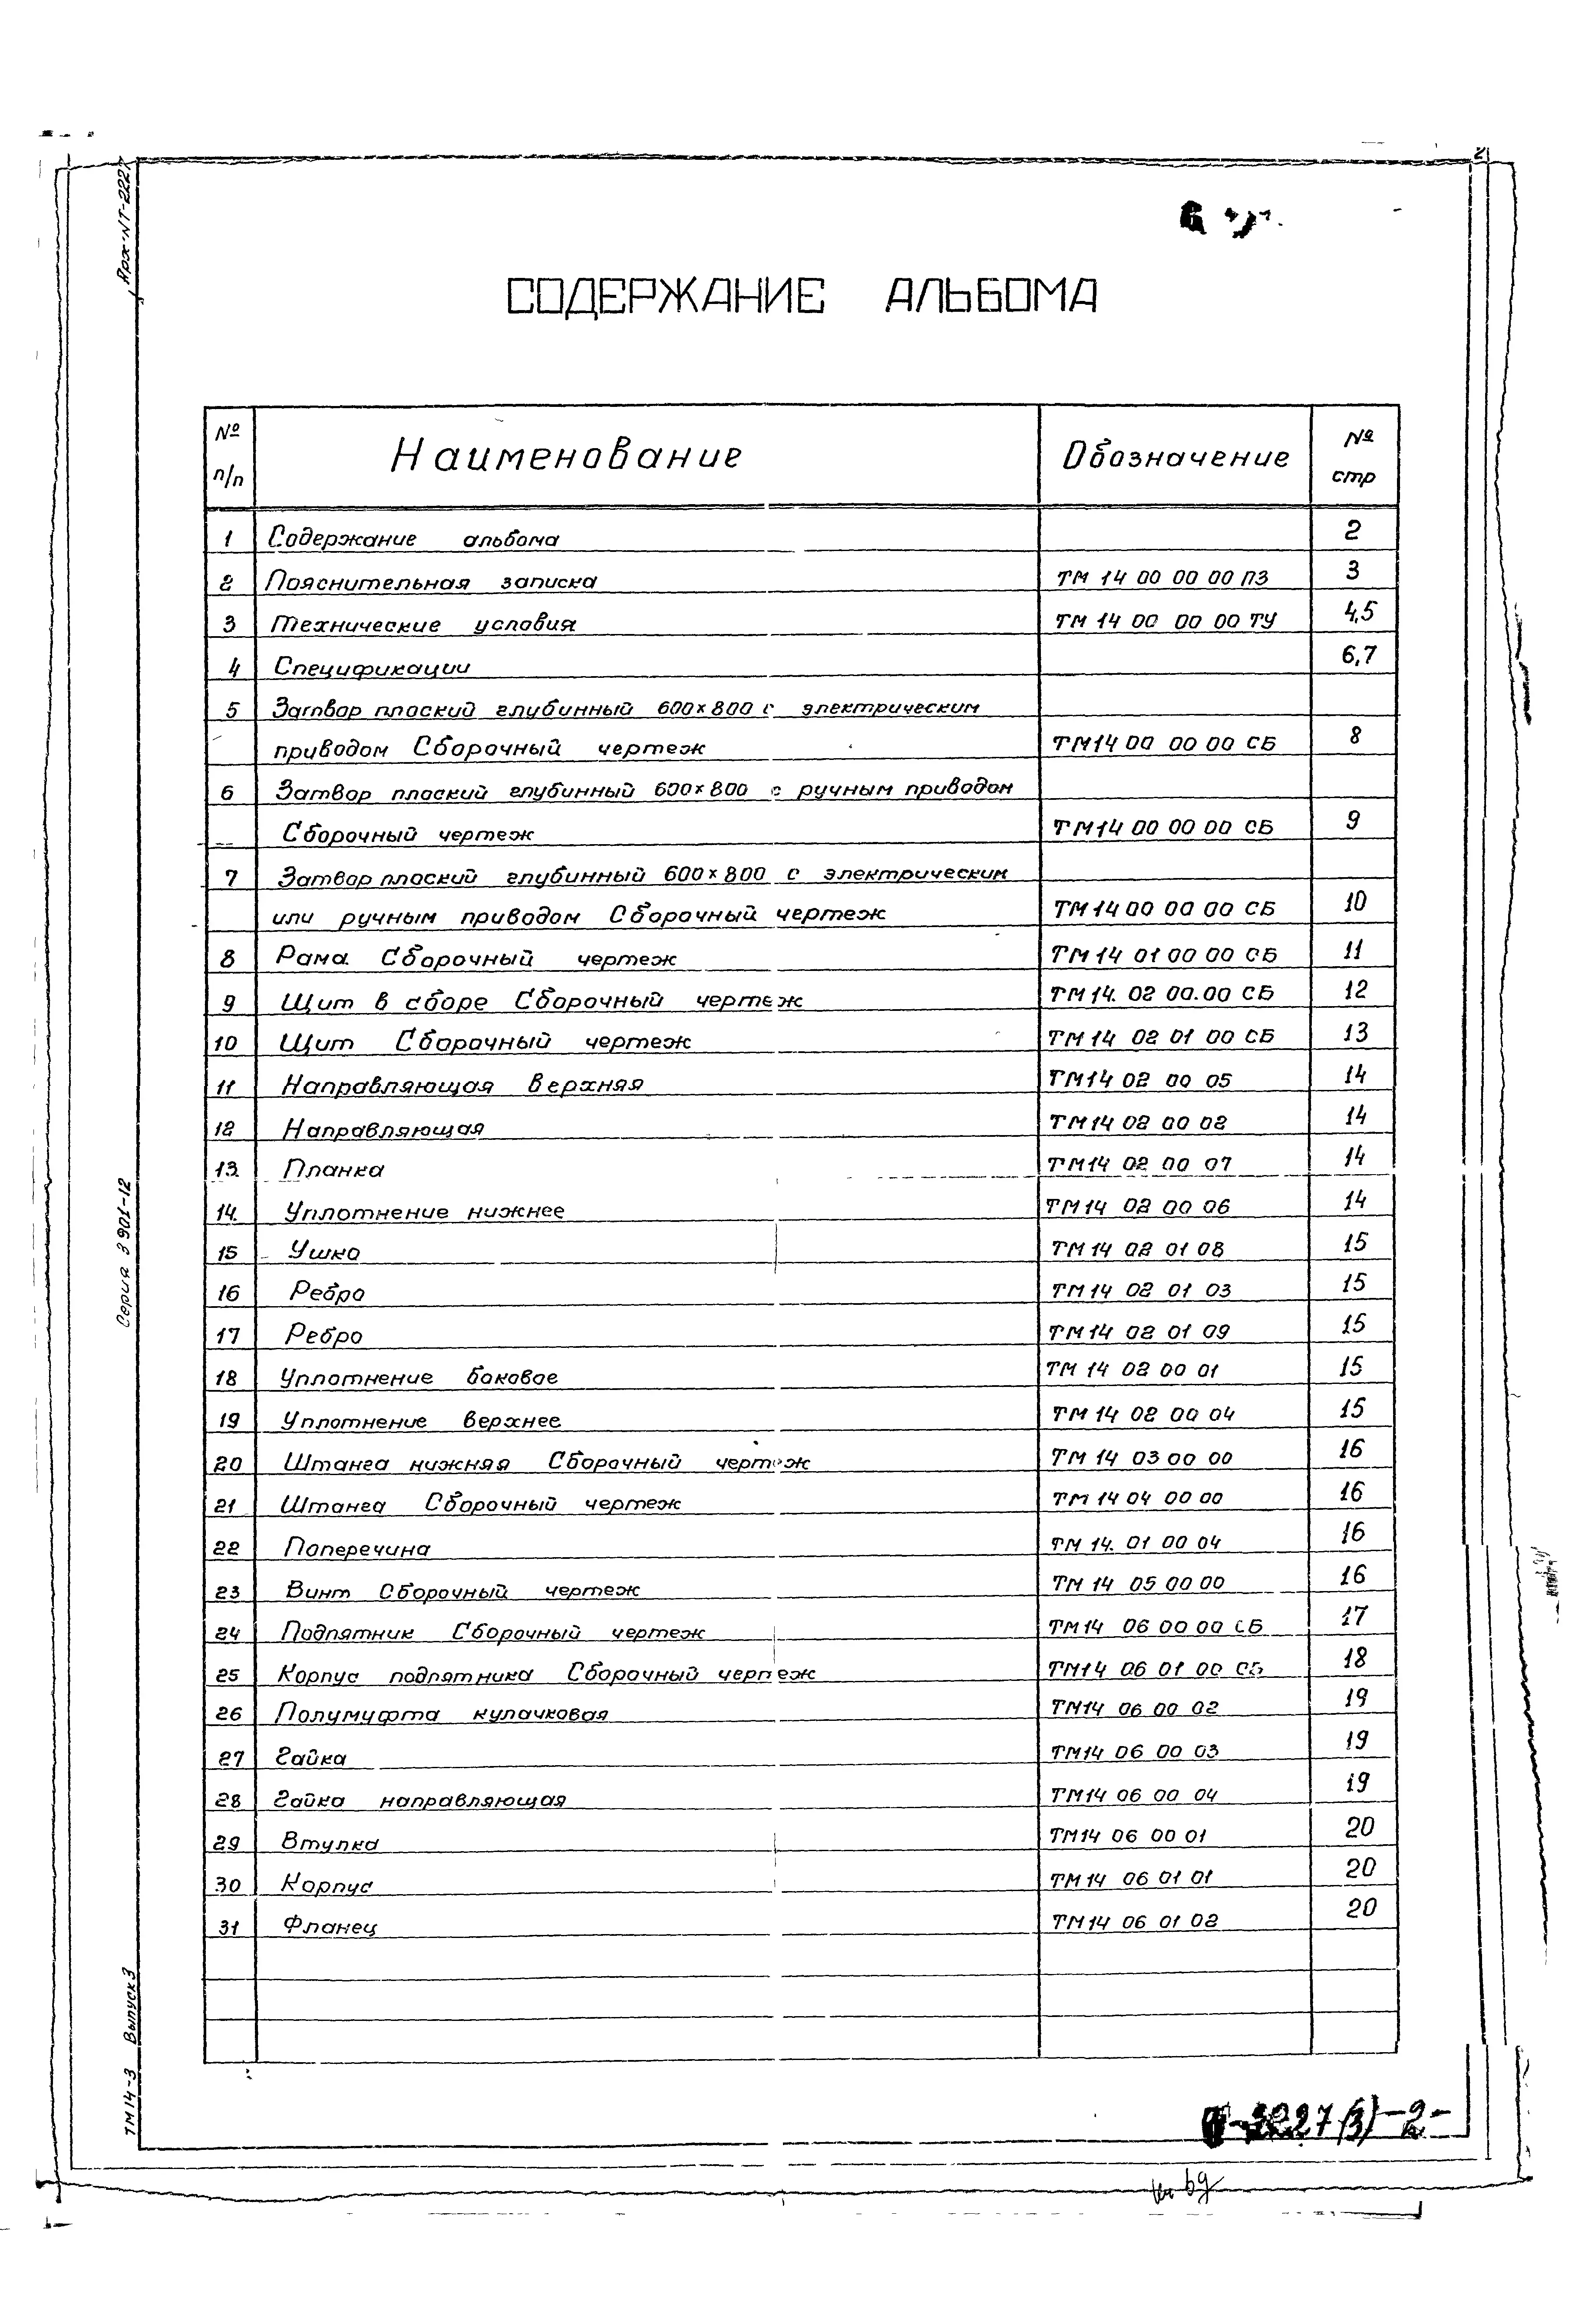 2
СОДЕРЖАНИЕ АЛЬБОМА
№ п/п Наименование Обозначение № стр
1 Содержание альбома 2
2 Пояснительная записка ТМ 14 00 00 00 ПЗ 3
3 Технические условия ТМ 14 00 00 00 ТУ 4,5
4 Спецификации 6,7
5 Затвор плоский глубинный 600×800 с электрическим
приводом Сборочный чертеж ТМ14 00 00 00 СБ 8
6 Затвор плоский глубинный 600×800 с ручным приводом
Сборочный чертеж ТМ14 00 00 00 СБ 9
7 Затвор плоский глубинный 600×800 с электрическим
или ручным приводом Сборочный чертеж ТМ14 00 00 00 СБ 10
8 Рама. Сборочный чертеж ТМ 14 01 00 00 СБ 11
9 Щит в сборе Сборочный чертеж ТМ14. 02 00.00 СБ 12
10 Щит Сборочный чертеж ТМ 14 02 01 00 СБ 13
11 Направляющая верхняя ТМ14 02 00 05 14
12 Направляющая ТМ14 02 00 02 14
13. Планка ТМ14 02 00 07 14
14. Уплотнение нижнее ТМ14 02 00 06 14
15 Ушко ТМ14 02 01 08 15
16 Ребро ТМ14 02 01 03 15
17 Ребро ТМ14 02 01 09 15
18 Уплотнение боковое ТМ 14 02 00 01 15
19 Уплотнение верхнее ТМ 14 02 00 04 15
20 Штанга нижняя Сборочный чертеж ТМ 14 03 00 00 16
21 Штанга Сборочный чертеж ТМ 14 04 00 00 16
22 Поперечина ТМ 14. 01 00 04 16
23 Винт Сборочный чертеж ТМ 14 05 00 00 16
24 Подпятник Сборочный чертеж ТМ14 06 00 00 СБ 17
25 Корпус подпятника Сборочный чертеж ТМ14 06 01 00 СБ 18
26 Полумуфта кулачковая ТМ14 06 00 02 19
27 Гайка ТМ14 06 00 03 19
28 Гайка направляющая ТМ14 06 00 04 19
29 Втулка ТМ14 06 00 01 20
30 Корпус ТМ14 06 01 01 20
31 Фланец ТМ14 06 01 02 20
Серия 3 901-12
ТМ14-3 Выпуск 3
3227(3)-2-